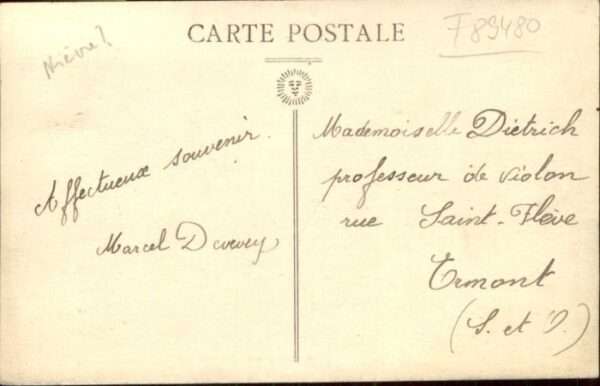 Nièvre!
CARTE POSTALE
F89480
Affectueux souvenir.
Marcel
Mademoiselle Dietrich
professeur de violon
rue Saint-Flève
Ermont
(S. et O.)